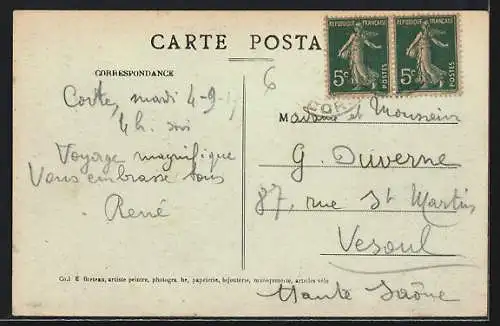 CARTE POSTA
REPUBLIQUE FRANÇAISE
REPUBLIQUE FRANÇAISE
5c
5c
CORRESPONDANCE
6
Corte, mardi 4-9-1
4h. soir
Voyage magnifique
Vous embrasse tous
René
COR
Madame et Monsieur
G. Duverne
87, rue St Martin
Vesoul
Haute Saône
artiste peintre, photographe, papeterie, bijouterie, maroquinerie, articles